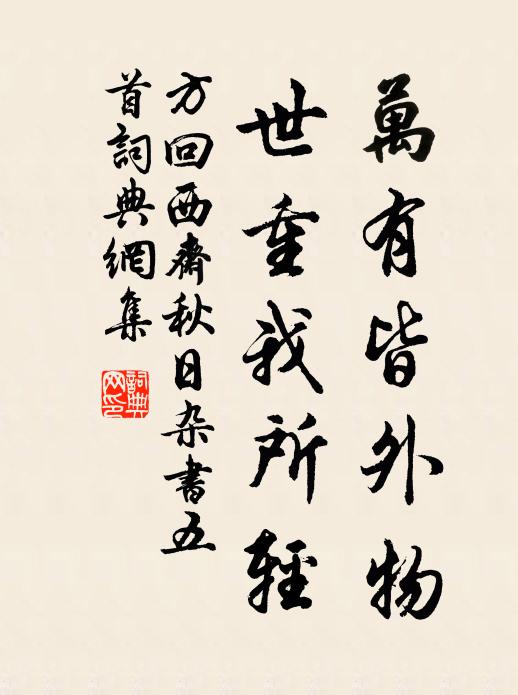 萬有皆外物
世重我所輕
方回西齋秋日杂書五
首詞典網集
詞典網印